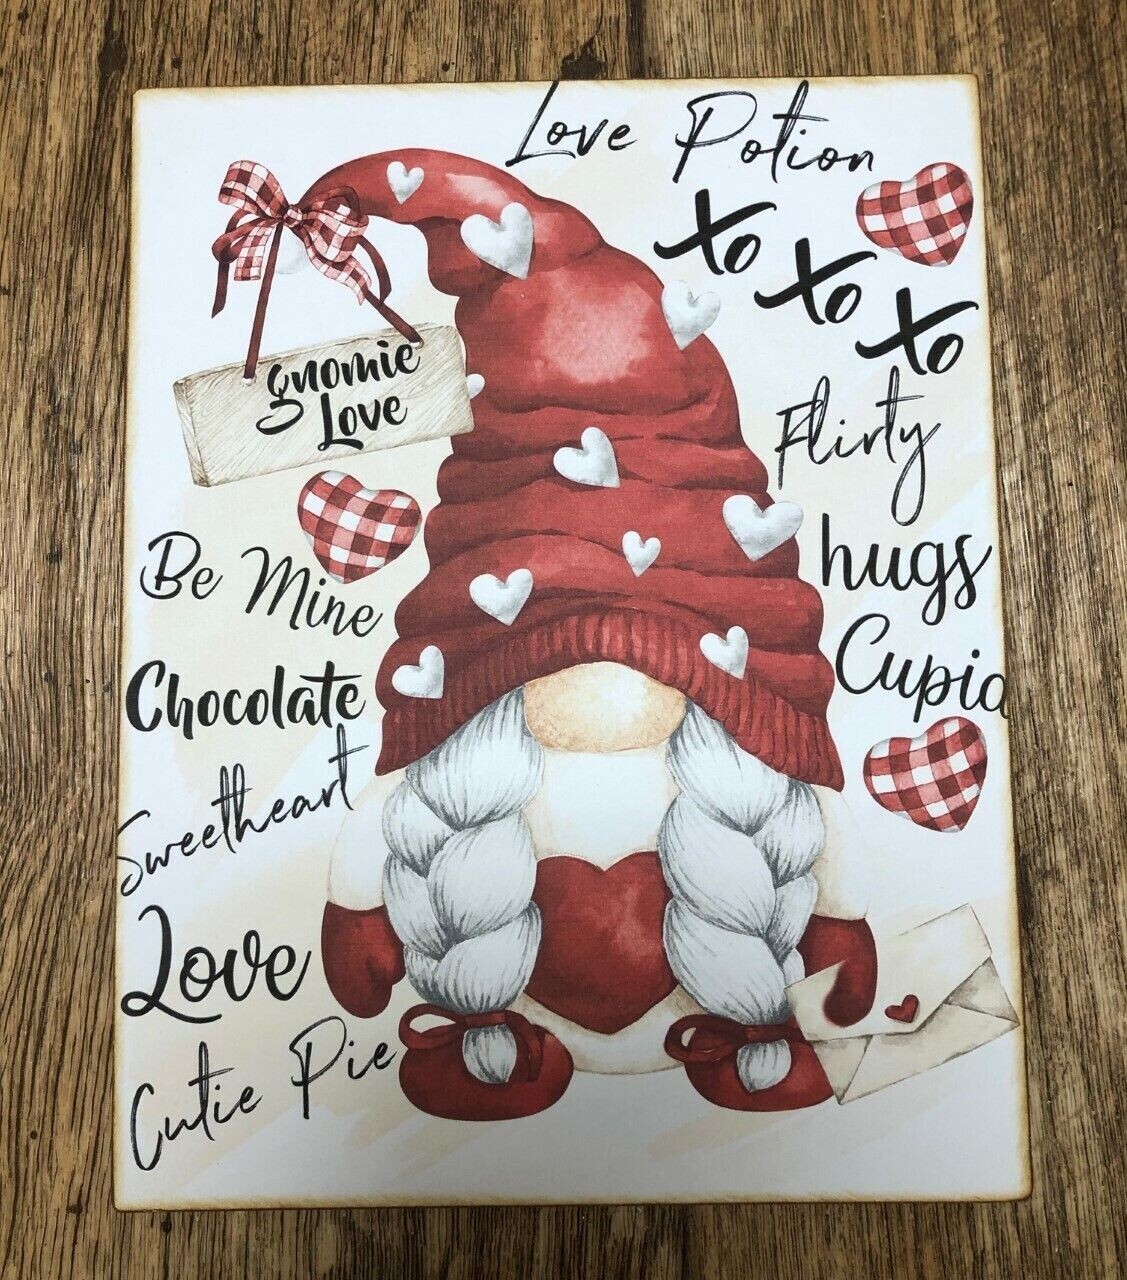 Love Potion
Xo Xo Xo
gnomie
Love
Flirty
hugs
Cupid
Be Mine
Chocolate
Sweetheart
Love
Cutie Pie